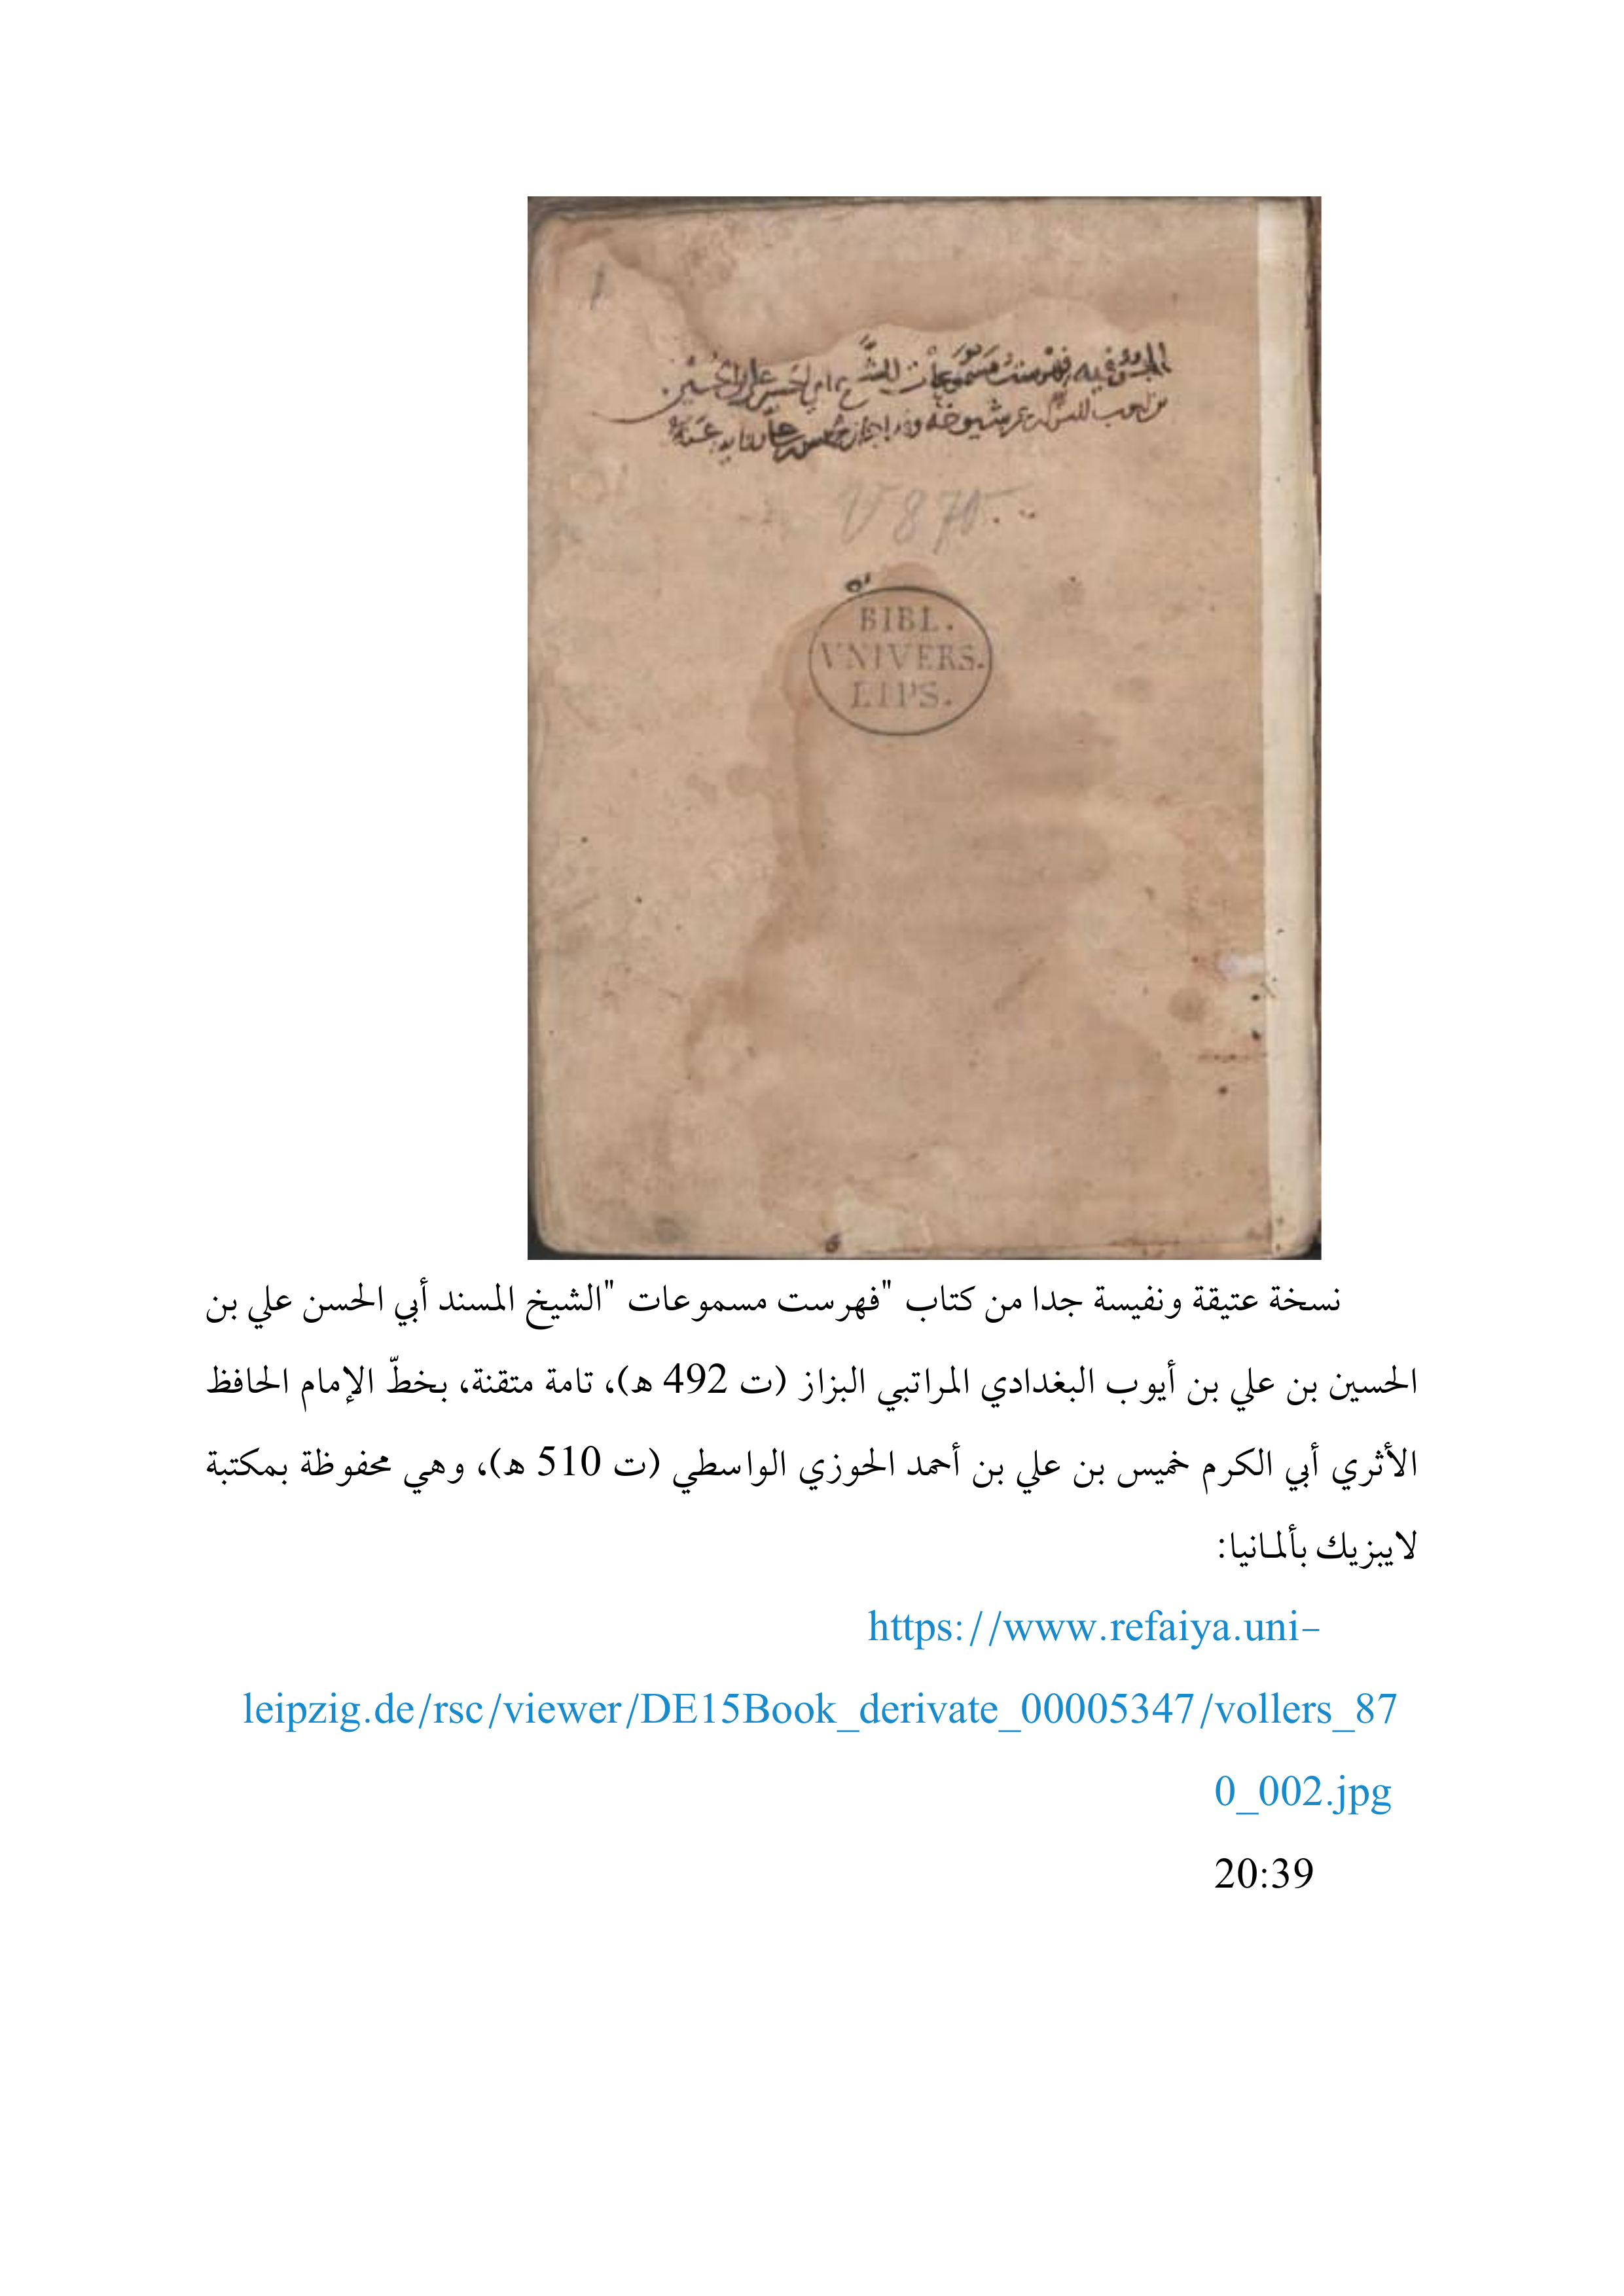 الجزؤ فيه فهرست مسموعات الشيخ ابي الحسن علي بن الحسين
بن ايوب البزاز عن شيوخه
V 870
BIBL.
VNIVERS.
LIPS.
نسخة عتيقة ونفيسة جدا من كتاب "فهرست مسموعات "الشيخ المسند أبي الحسن علي بن
الحسين بن علي بن أيوب البغدادي المراتبي البزاز (ت 492 هـ)، تامة متقنة، بخطّ الإمام الحافظ
الأثري أبي الكرم خميس بن علي بن أحمد الحوزي الواسطي (ت 510 هـ)، وهي محفوظة بمكتبة
لايبزيك بألمانيا:
https://www.refaiya.uni-
leipzig.de/rsc/viewer/DE15Book_derivate_00005347/vollers_87
0_002.jpg
20:39